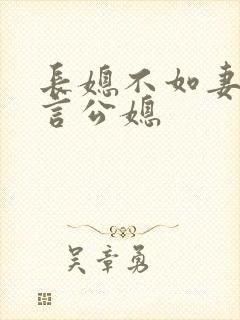 長媳不如妻
言公媳
吴章勇